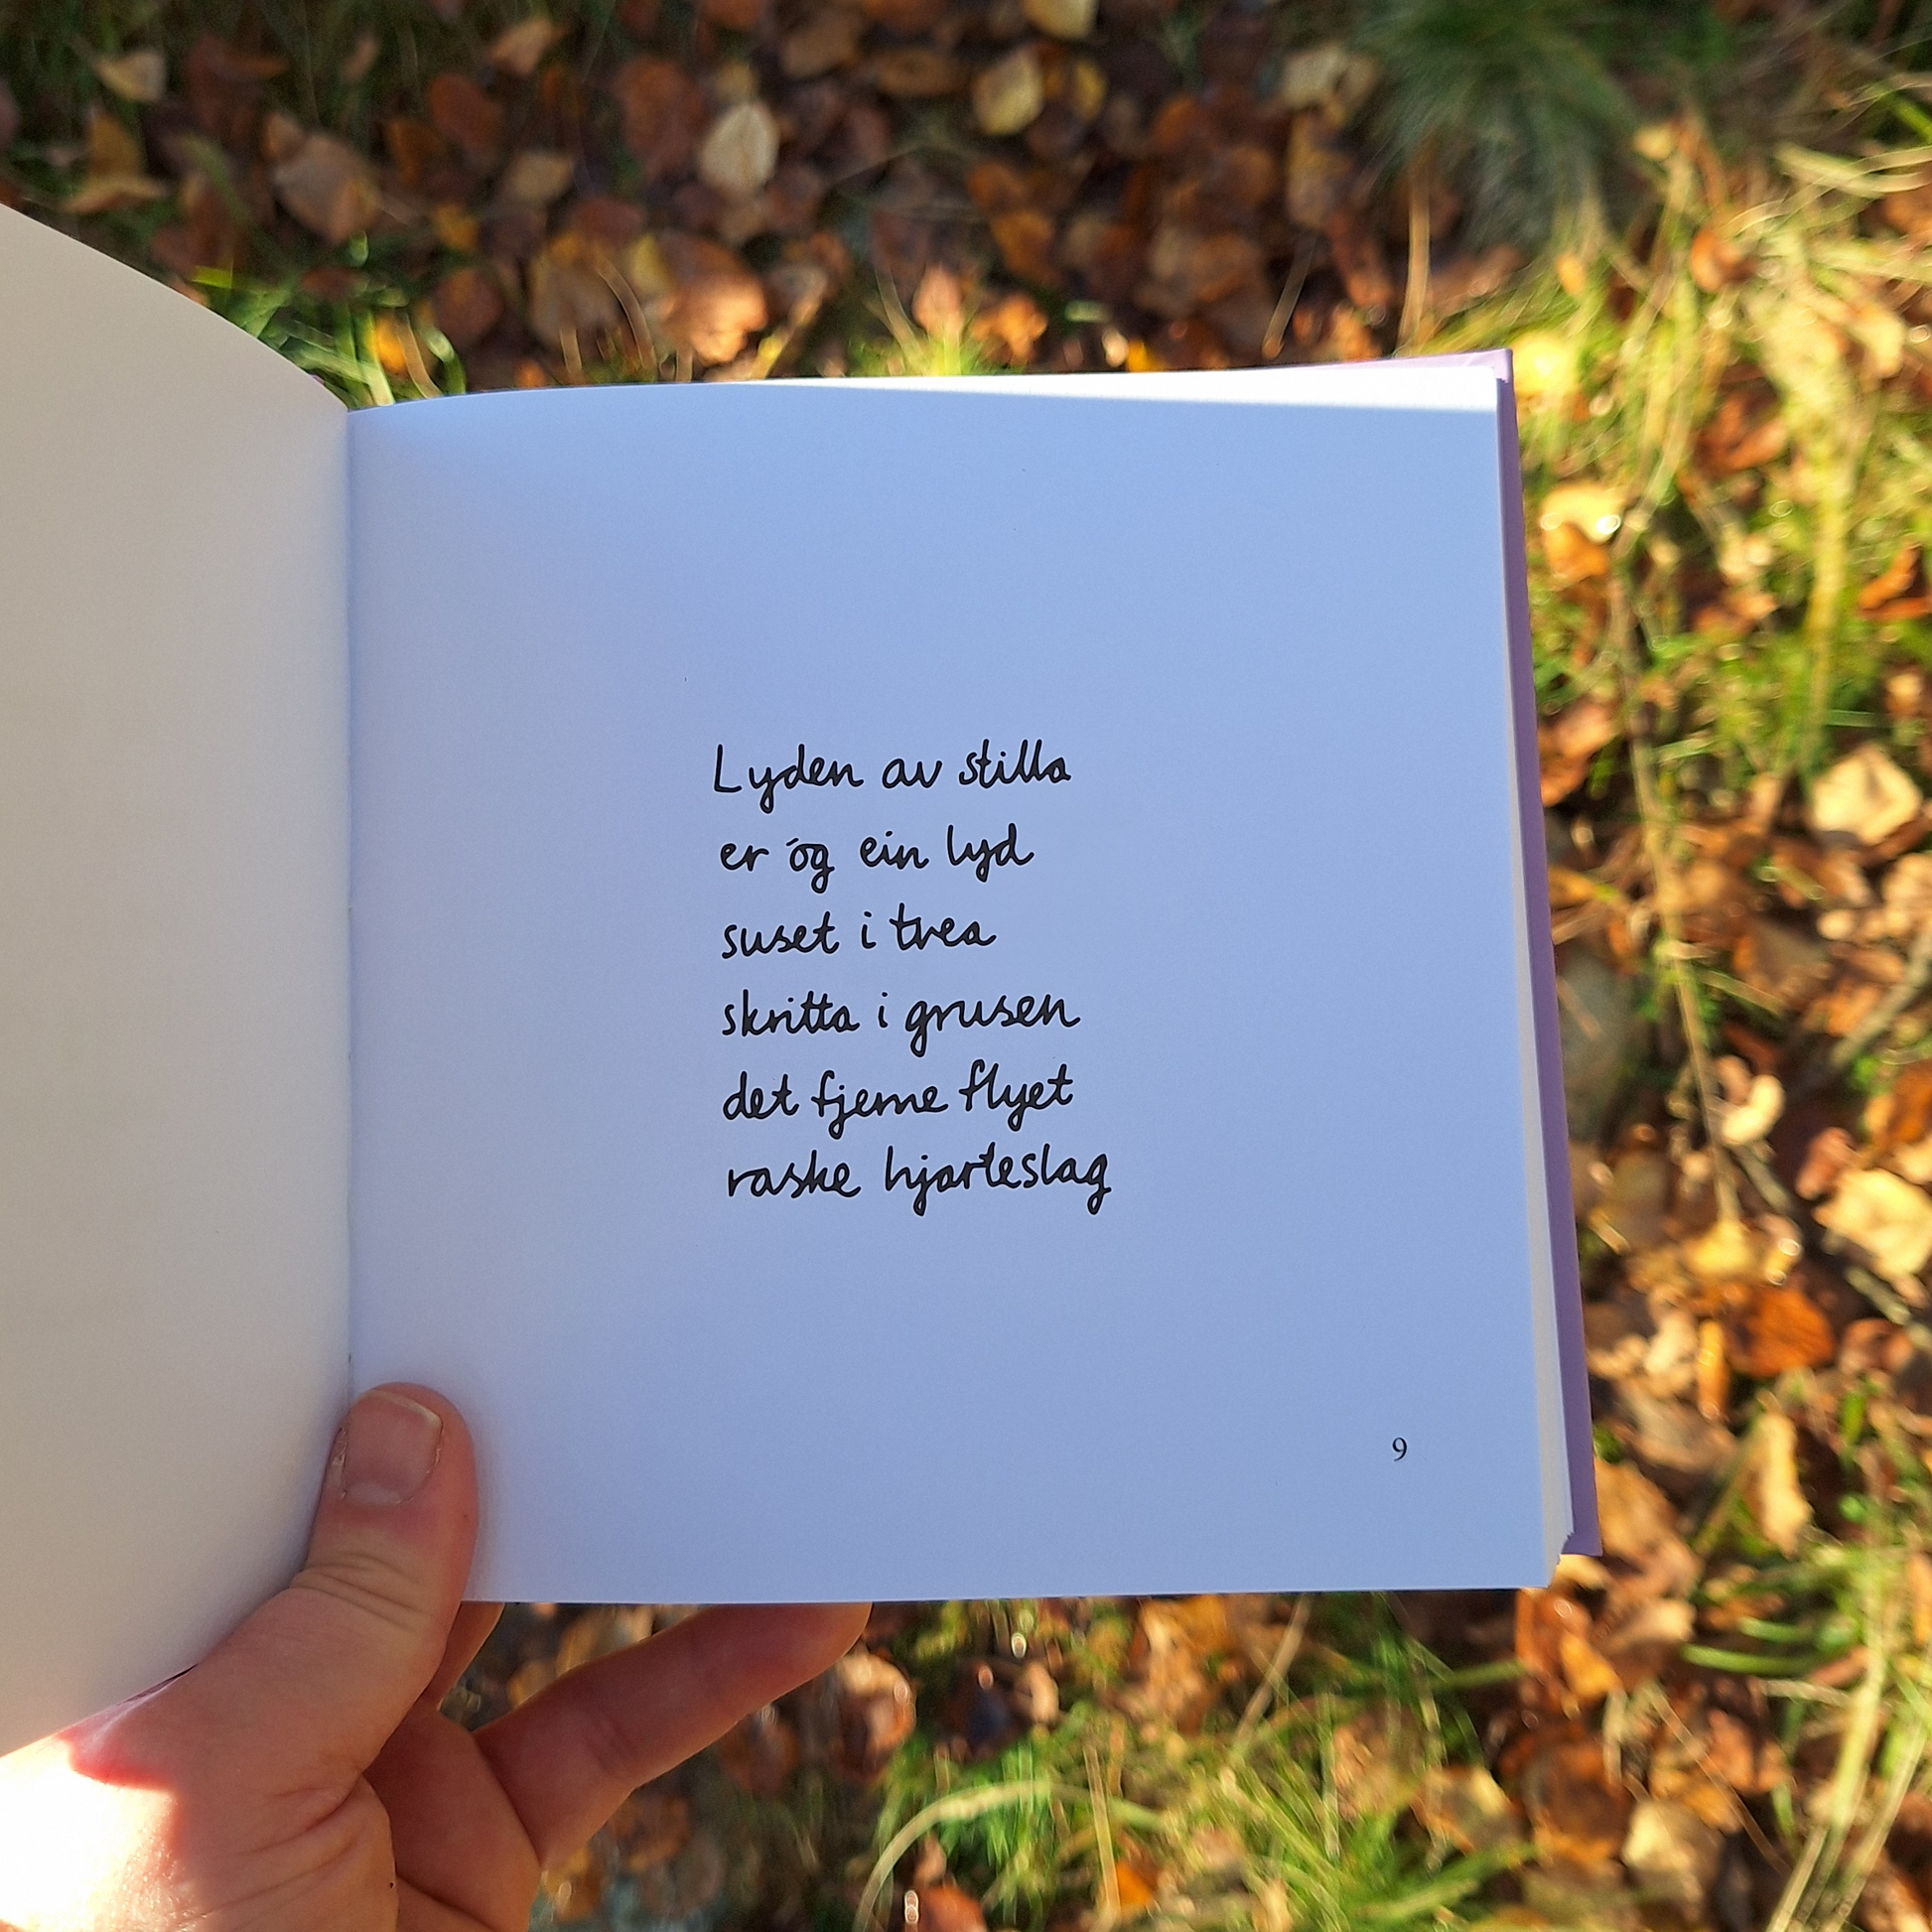 Lyden av stilla
er óg ein lyd
suset i trea
skritta i grusen
det fjerne flyet
raske hjarteslag
9